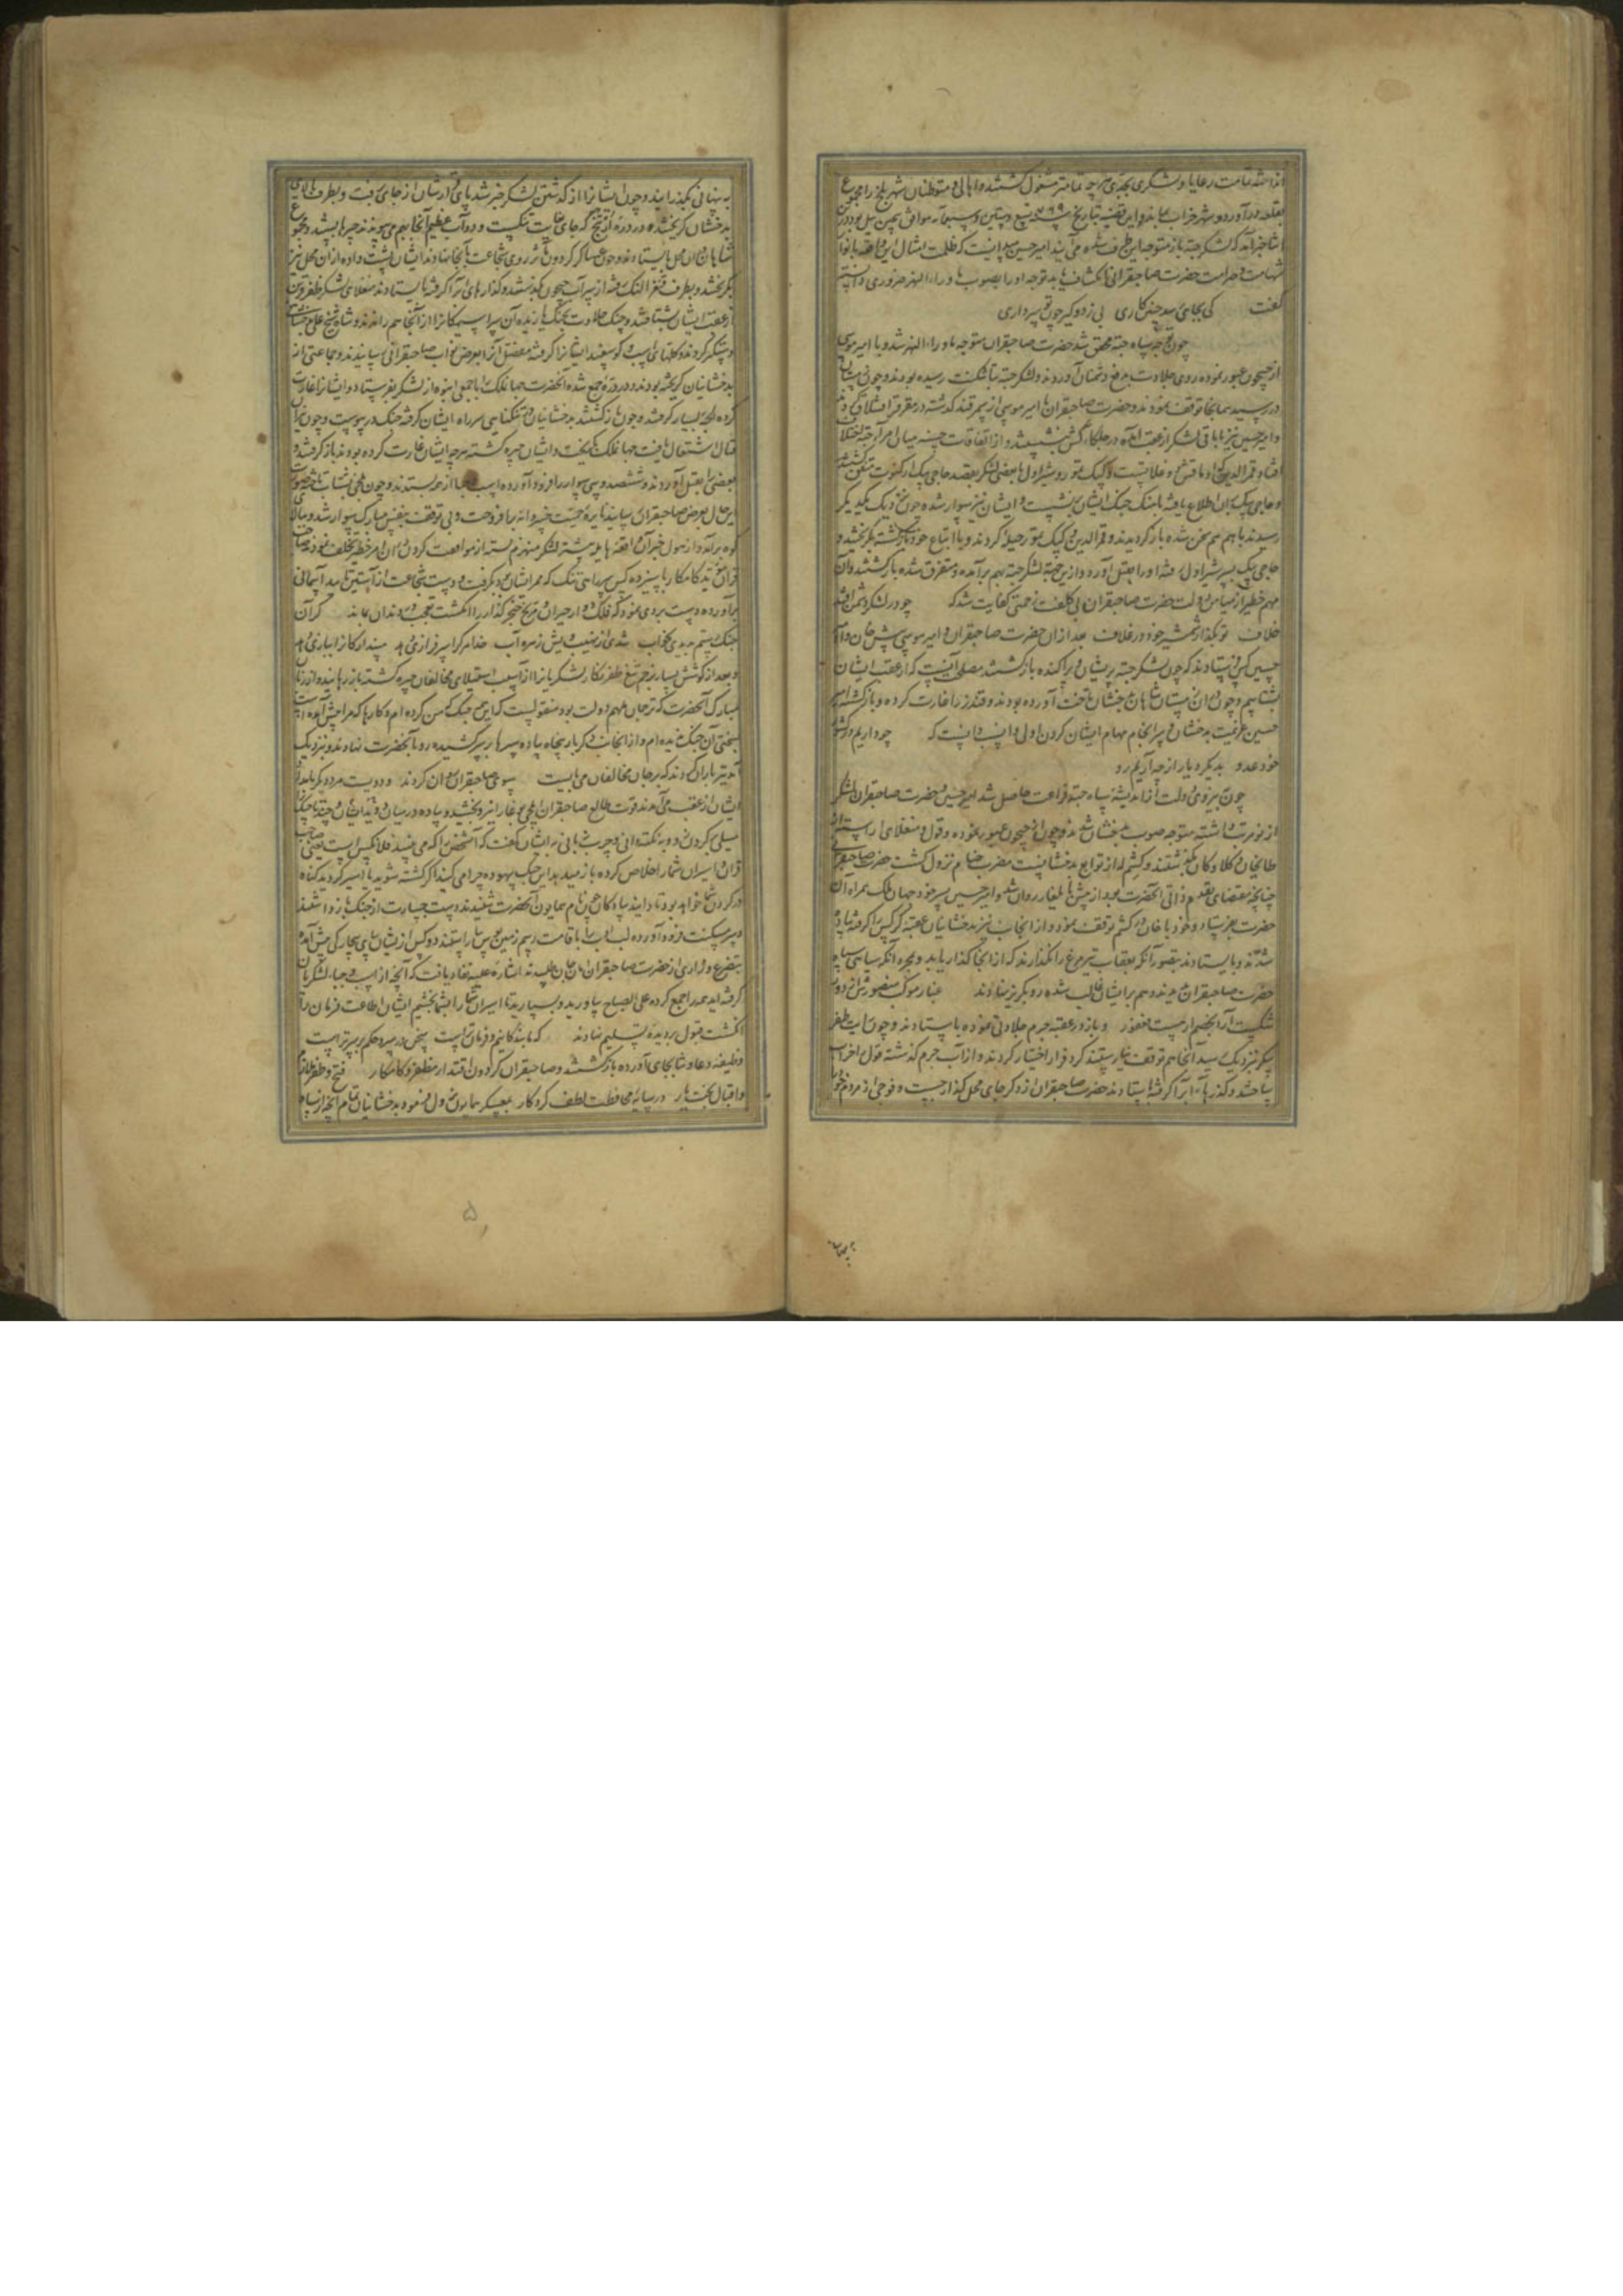 انداخته تمامت رعایا و لشکری بجدی هر چه تمامتر مشغول گشتند و اهالی و متوطنان شهر بلخ را مجموع
بقلعه درآورد و شهر خراب بماند و این قضیه بتاریخ سنه ۷۶۹ تسع و ستین و سبعمایه موافق پیچین ییل بود درین
اثنا خبر آمد که لشکر جته باز متوجه این طرف شده می آیند امیر حسین میدانست که ظلمت امثال این واقعه بانوار
شهامت و صرامت حضرت صاحبقرانی انکشاف یابد توجه او را بصوب ماوراء النهر ضروری دانسته
گفت کی بجای رسد چنین کاری بی زد و گیر چون تو سرداری
چون توجه سپاه جته محقق شد حضرت صاحبقران متوجه ماوراء النهر شد و با امیر موسی
از جیحون عبور نموده روی جلادت بدفع دشمنان آوردند و لشکر جته بتاشکنت رسیده بودند و چون زمستان
در رسید همانجا توقف نمودند و حضرت صاحبقران با امیر موسی از سمرقند گذشته در مقر قشلاق کردند
و امیر حسین نیز با باقی لشکر از عقب آمده در جلگاء کش بنشست و از اتفاقات حسنه میان امراء جته اختلاف
افتاد قمر الدین و کپک تمور و شیراول با بعضی لشکر بقصد حاجی بیک ارکنوت متفق گشتند
و حاجی بیک بران اطلاع یافته باهنگ جنگ ایشان برنشست و ایشان نیز سوار شده چون نزدیک یکدیگر
رسیدند با هم هم سخن شده باز گردیدند و قمر الدین و کپک تمور حیله کردند و با اتباع خود بازگشته بگریختند و
حاجی بیک بر سر شیراول رفته او را بقتل آورد و ازین جهت لشکر جته بهم برآمده و متفرق شده بازگشتند و آن
مهم خطیر از میامن دولت حضرت صاحبقران بی کلفت زحمتی کفایت شد که چو در لشکر دشمن افتد
خلاف تو بگذار شمشیر خود در غلاف بعد ازان حضرت صاحبقران و امیر موسی پیش خان و امیر
حسین کس فرستادند که چون لشکر جته پریشان و پراکنده بازگشتند مصلحت آنست که از عقب ایشان
بشتابیم و چون دران زمستان شاهان بدخشان تاخت آورده بودند و قندز را غارت کرده و بازگشته امیر
حسین عزیمت بدخشان و سرانجام مهام ایشان کردن اولی و انسب دانست که چو داریم در کشور
خود عدو بدیگر دیار از چه آریم رو
چون بنیروی دولت از اندیشه سپاه جته فراغت حاصل شد امیر حسین و حضرت صاحبقران لشکر
از نو مرتب داشته متوجه صوب بدخشان شدند و چون از جیحون عبور نموده و قول و منغلای آراسته از
طایخان و کلاوکان بگذشتند و کشم که از توابع بدخشانست مضرب خیام نزول گشت حضرت صاحبقران
حضرت بفرستاد و خود با خان در کشم توقف نمود و از انجانب نیز بدخشانیان عقبه کرکس را گرفته پیاده
شدند و بایستادند بتصور آنکه بعقاب تیر مرغ را نگذارند که از انجا گذار یابد و بمجرد آنکه سیاهی سپاه
حضرت صاحبقران دیدند وهم بر ایشان غالب شده رو بگریز نهادند غبار موکب منصورش از دور
شکست آرد بخصم ار هست فغفور و باز در عقبه جرم جلادتی نموده بایستادند و چون رایت ظفر
پیکر نزدیک رسید آنجا هم توقف نیارستند کرد فرار اختیار کردند و از آب جرم گذشته قول را خراب
ساختند و گذرهاء آب را گرفته بایستادند حضرت صاحبقران زود کرجای محل گذار جست و فوجی از مردم خود
به پنهانی بگذرانید و چون ایشانرا از گذشتن لشکر خبر شد پای قرارشان از جای برفت و بطرف بالای
بدخشان گریخته در دره که جای بغایت تنگست و دو آب عظیم آنجا بهم می پیوندند چپرها ببستند و مجموع
شاهان دران محل بایستادند و چون عساکر گردون مآثر روی شجاعت بآنجا نهادند ایشان پشت داده ازان محل نیز
بگریختند و بطرف قنغر النک رفته از سر آب جیحون بگذشتند و گذارهای آب را گرفته بایستادند منغلای لشکر ظفر قرین
از عقب ایشان بشتافتند و چنگ جلاوت بجنگ یازیده آن سراسیمه کانرا از آنجا هم راندند و شاه شیخ علی بدخشانی را
دستگیر کردند و گلهای اسب و گوسفند ایشانرا گرفته مفصل آنرا بعرض نواب صاحبقرانی رسانیدند و جماعتی از
بدخشانیان گریخته بودند و در دره جمع شده آنحضرت جهانملک را با جمعی انبوه از لشکر بفرستاد و ایشانرا غارت
کرده الجه بسیار گرفتند و چون بازگشتند بدخشانیان در تنگنایی سر راه ایشان گرفته جنگ در پیوست و چون نیران
قتال اشتعال یافت جهانملک بگریخت و ایشان چیره گشته هر چه ایشان غارت کرده بودند باز گرفتند و
بعضی را بقتل آوردند و ششصد و سی سوار را فرود آورده اسب از همه بستدند
این حال بعرض صاحبقران رسانید نایره حمیت خسروانه برافروخت و بی توقف بنفس مبارک سوار شد و ببالای
کوه برآمد و از هول خبر آن واقعه هایله بیشتر لشکر منهزم گشته از موافقت کردن در ان امر خطیر تخلف نمودند صاحب
قران مؤید کامکار با سیزده کس سر راهی تنگ که ممر ایشان بود بگرفت و دست شجاعت از آستین تایید آسمانی
برآورده دست بردی نمود که فلک دوار حیران و مریخ خنجر گذار را انگشت تعجب در دندان بماند گر آن
جنگ رستم بدیدی بخواب شدی از نهیب ویش زهره آب خدا هر کرا سرفرازی دهد
و بعد از کوشش بسیار بزخم تیغ ظفر نگار لشکریانرا از آسیب استیلای مخالفان چیره گشته باز رهانید و از زبان
مبارک آنحضرت که ترجمان ملهم دولت بود منقولست که این همه جنگ که من کرده ام و کارها که مرا پیش آمده است
بسختی آن جنگ ندیده ام و از انجانب دیگر بار پنجاه پیاده سپرها بر سر کشیده رو بآنحضرت نهادند و نزدیک
آمده تیرباران کردند که بر جان مخالفان می بایست بسوی صاحبقران روان کردند و دویست مرد دیگر پیاده از
ایشان از عقب می آمدند قوت طالع صاحبقران ایلچی بوغا را نیرو بخشید و پیاده در میان دوید و ایشان را چند تاجیک
سیلی بگردن زد و به نکته دانی و چرب زبانی به ایشان گفت که آن شخص را که می بینید فلان کس است یعنی صاحب
قران و اسیران شما را خلاص کرده باز میدهد این جنگ بیهوده چرا می کنید اگر کشته شوید یا اسیر گردید گناه
در گردن شما خواهد بود تا دانید پیادگان چون نام همایون آنحضرت شنیدند دست جسارت از جنگ باز داشتند
و سر مسکنت فرود آورده لب ادب را با قامت رسم زمین بوس بیاراستند دو کس از ایشان بپای بیچارگی پیش آمده
بتضرع و زاری از حضرت صاحبقران امان جان طلبیدند اشاره علیه نفاذ یافت که آنچه از اسب و جبه لشکریان
گرفته اید همه را جمع کرده علی الصباح بیاورید و بسپارید تا اسیران شما را بشما بخشیم ایشان اطاعت فرمان را
انگشت قبول بر دیده تسلیم نهادند که ما بندگانیم و فرمان تراست سخن در سر و حکم بر سر تراست
وظیفه دعا و ثنا بجای آورده بازگشتند و صاحبقران گردون اقتدار مظفر و کامکار فتح و ظفر ملازم
و اقبال و بخت یار در سایه محافظت لطف کردگار بمعسکر همایون نزول فرمود و بدخشانیان تمام آنچه از سپاه